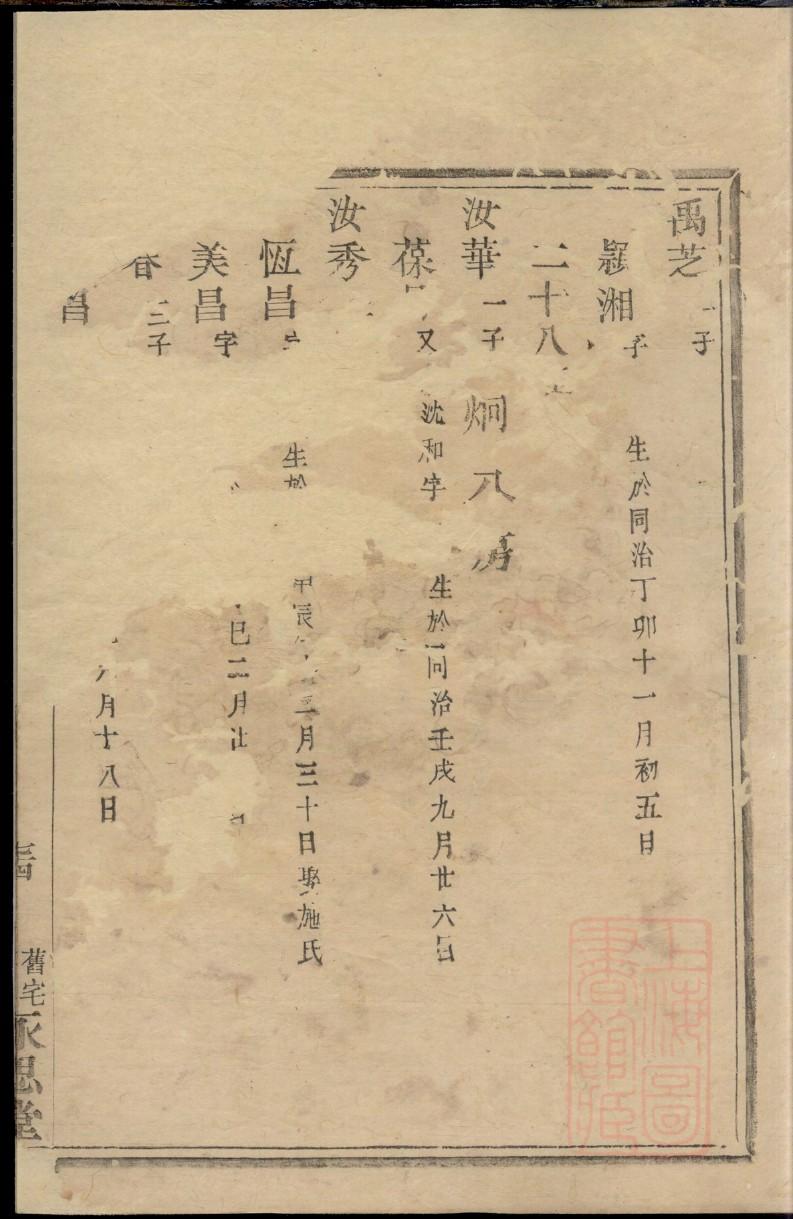 禹芝 一子
湘 子 生於同治丁卯十一月初五日
二十八
汝華 一子 炯八房
葆 又 沈和字 生於同治壬戌九月廿六日
汝秀
恆昌 生於 甲辰 三月三十日 娶施氏
美昌 字 巳二月
三子
昌 月十八日
舊宅 永思堂
上海圖書館藏